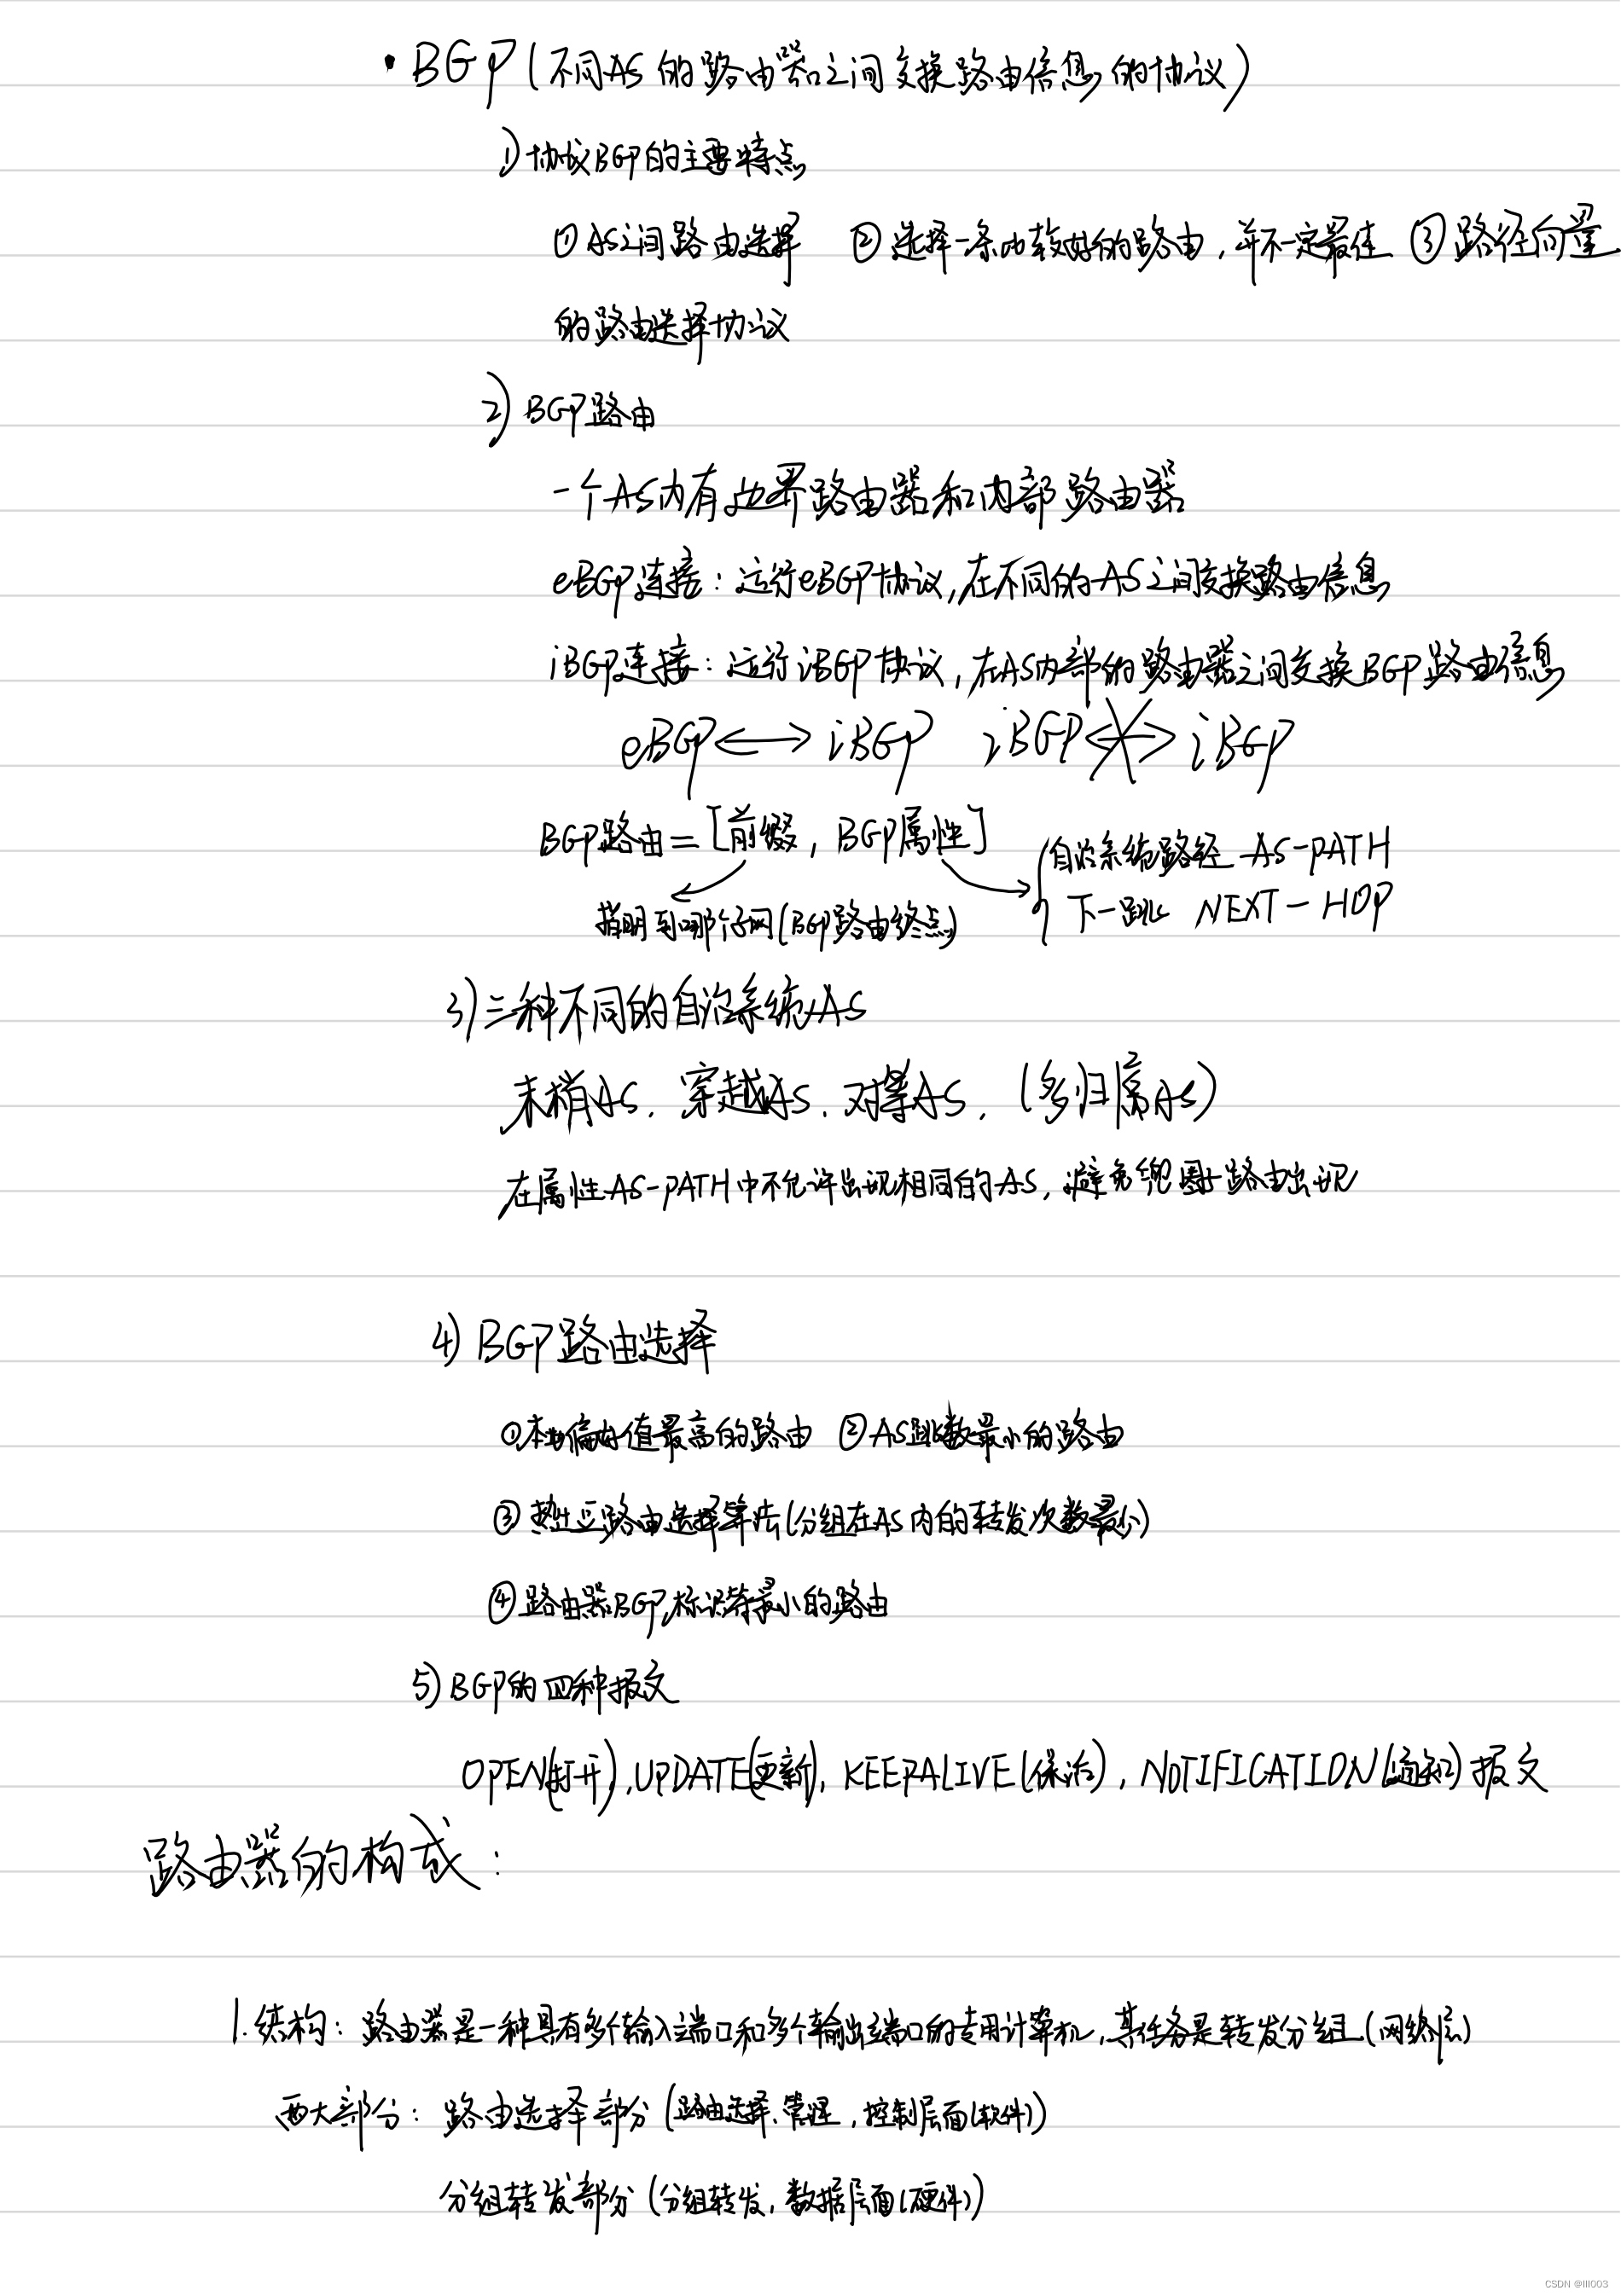 • BGP(不同AS的路由器之间交换路由信息的协议)
1)协议BGP的主要特点
①AS之间路由选择 ②选择一条比较好的路由,并不一定最佳 ③路径向量
的路由选择协议
2)BGP路由
一个AS内有边界路由器和内部路由器
eBGP连接:运行eBGP协议,在不同的AS之间交换路由信息
iBGP连接:运行iBGP协议,在AS内部的路由器之间交换BGP路由信息
eBGP⟷iBGP iBGP⟷iBGP
BGP路由=[前缀,BGP属性]
自治系统路径 AS-PATH
下一跳 NEXT-HOP
指明到哪个子网(BGP路由终点)
3)三种不同的自治系统AS
末梢AS、穿越AS、对等AS、(多归属AS)
在属性AS-PATH中不允许出现相同的AS,避免兜圈子路由出现
4)BGP路由选择
①本地偏好值最高的路由 ②AS跳数最小的路由
③热土豆路由选择算法(分组在AS内的转发次数最少)
④路由器BGP标识符最小的路由
5)BGP的四种报文
OPEN(打开),UPDATE(更新),KEEPALIVE(保活),NOTIFICATION(通知)报文
路由器的构成:
1.结构:路由器是一种具有多个输入端口和多个输出端口的专用计算机,其任务是转发分组(网络层)
两大部分:路由选择部分(路由选择、管理,控制层面(软件))
分组转发部分(分组转发,数据层面(硬件))
CSDN @lll003